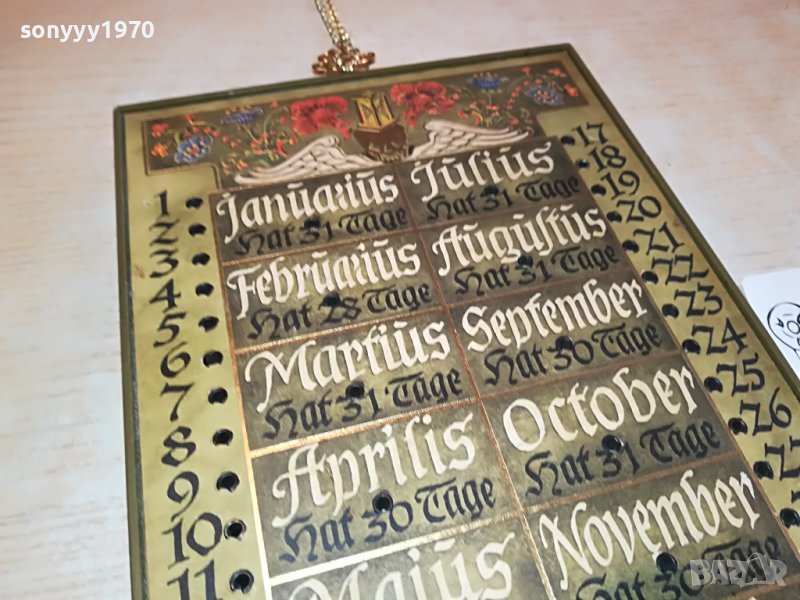 sonyyy1970
1
2
3
4
5
6
7
8
9
10
11
Januarius
Hat 31 Tage
Februarius
Hat 28 Tage
Martius
Hat 31 Tage
Aprilis
Hat 30 Tage
Maius
Julius
Hat 31 Tage
Augustus
Hat 31 Tage
September
Hat 30 Tage
October
Hat 31 Tage
November
Hat 30 Tage
17
18
19
20
21
22
23
24
25
26
BAZAR